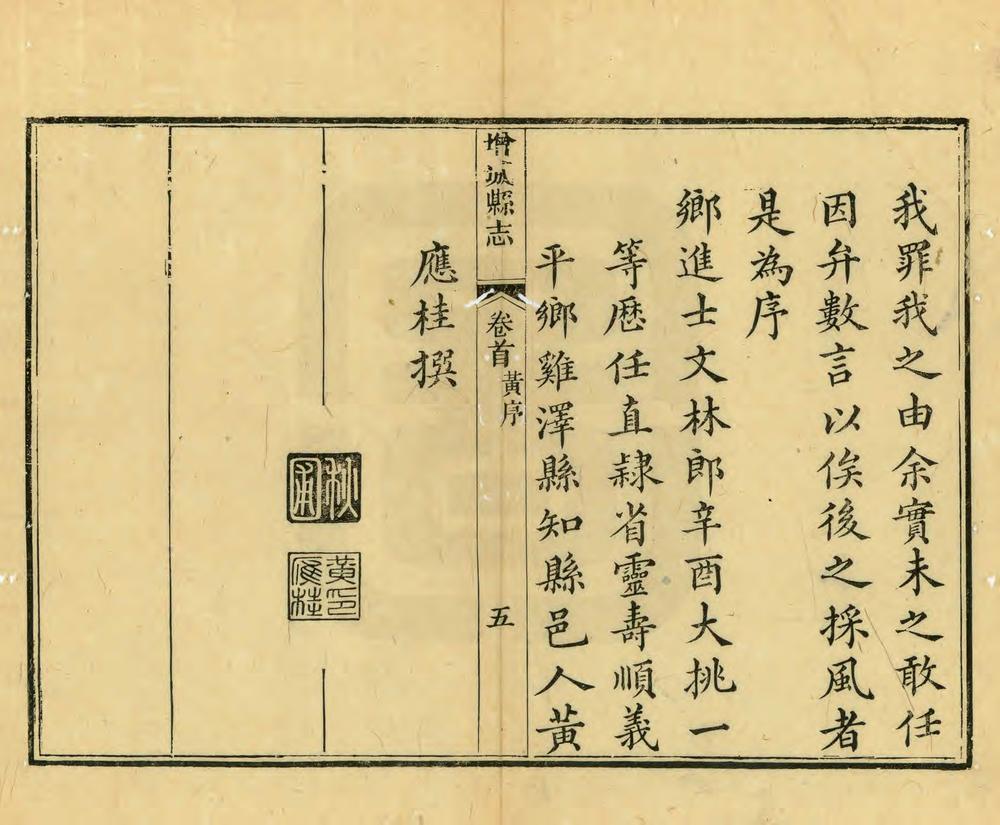 我罪我之由余實未之敢任
因弁數言以俟後之採風者
是為序
鄉進士文林郎辛酉大挑一
等歷任直隸省靈壽順義
平鄉雞澤縣知縣邑人黃
增城縣志
卷首
黃序
五
應桂撰
秋圃
黃印應桂